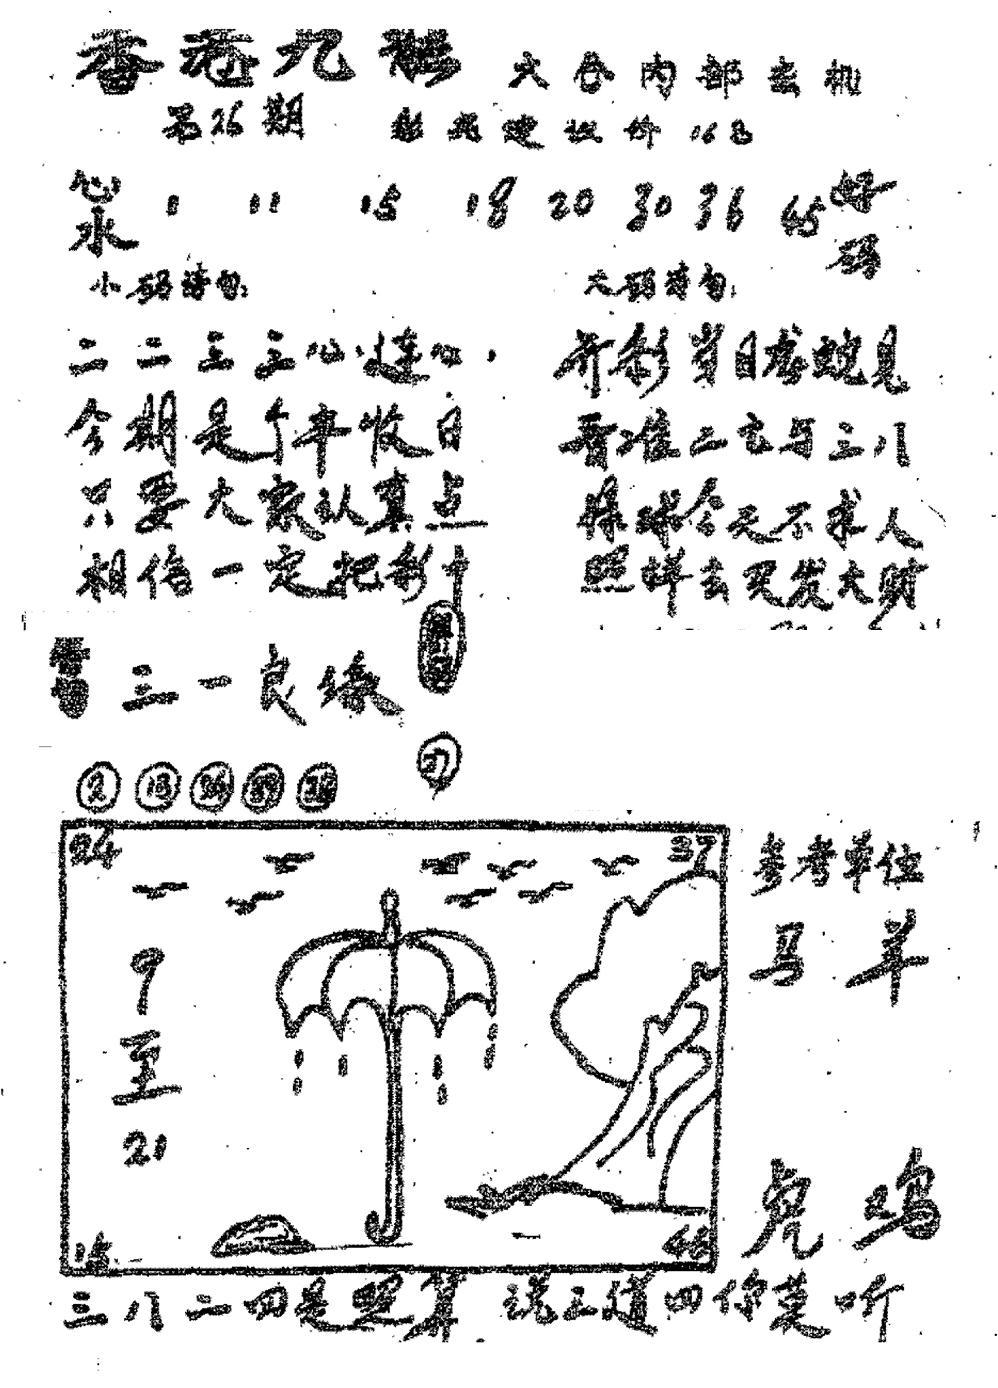 香港九龍
六合内部玄机
第26期
建议价16
心水 1 11 15 18 20 30 36 45 好码
小码诗句:
大码诗句:
二二三三心连心
开彩岁日龙蛇见
今期是个丰收日
看准二七与三八
只要大家认真点
今天不求人
相信一定把彩中
照样去买发大财
三一良缘
② ⑬
24
37
9至21
15
参考单位
马 羊
虎 鸡
三八二四是照算
说三道四你莫听